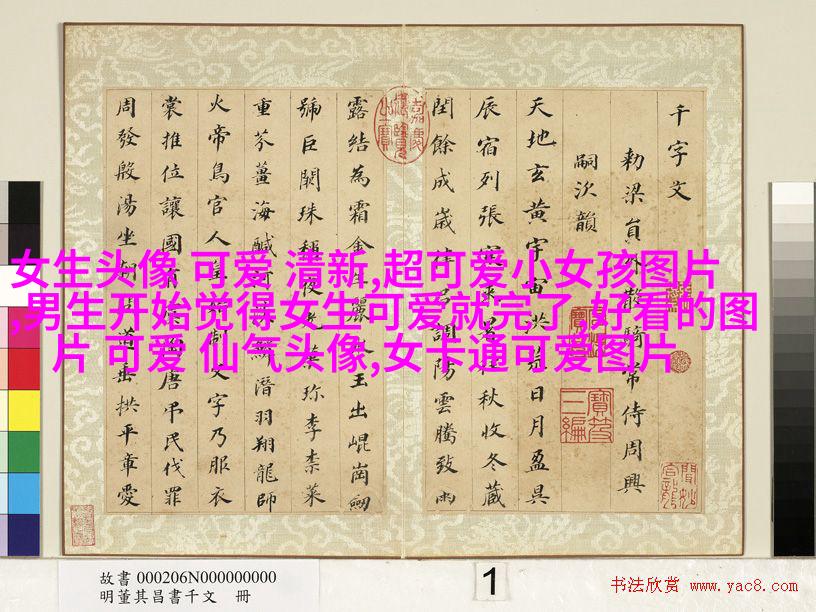 千字文
勑梁員外散騎常侍周興
嗣次韻
天地玄黃宇宙洪荒日月盈昃
辰宿列張寒來暑往秋收冬藏
閏餘成歲律呂調陽雲騰致雨
露結為霜金生麗水玉出崐崗劒
號巨闕珠稱夜光菓珍李柰菜
重芥薑海鹹河淡鱗潛羽翔龍師
火帝鳥官人皇始制文字乃服衣
裳推位讓國有虞陶唐弔民伐罪
周發殷湯坐朝問道垂拱平章愛
女生头像 可爱 清新,超可爱小女孩图片
,男生开始觉得女生可爱就完了, 好看的图
片 可爱 仙气头像,女卡通可爱图片
故書 000206N000000000
明董其昌書千文 冊
1
书法欣赏 www.yac8.com